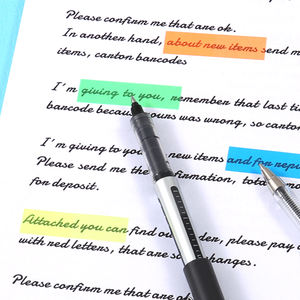 Please confirm me that are ok.
In another hand, about new items send m
items, carton barcodes
I'm giving to you, remember that last ti
barcode because yours was wrong, so carton
I'm giving to you new items and for rep
Please send me the confirmation, total
for deposit.
Attached you can find our der, please pay
with red letters, that are so changes.
Please confirm me that are ok